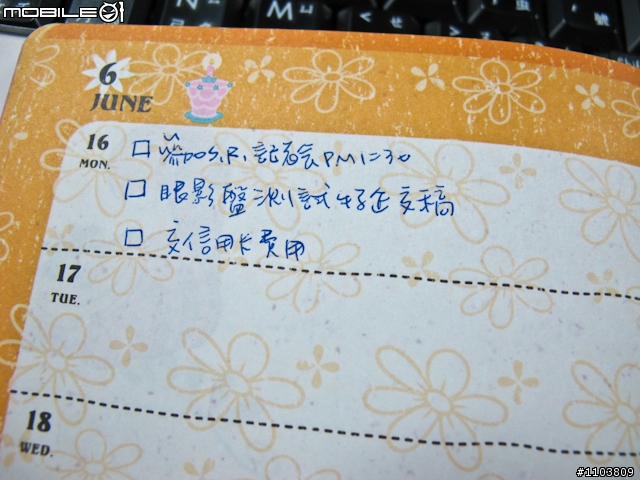 MOBILE01
6
JUNE
16
MON.
記者會 PM 1:30
眼影盤測試好企交稿
交信用卡費用
17
TUE.
18
WED.
#1103809